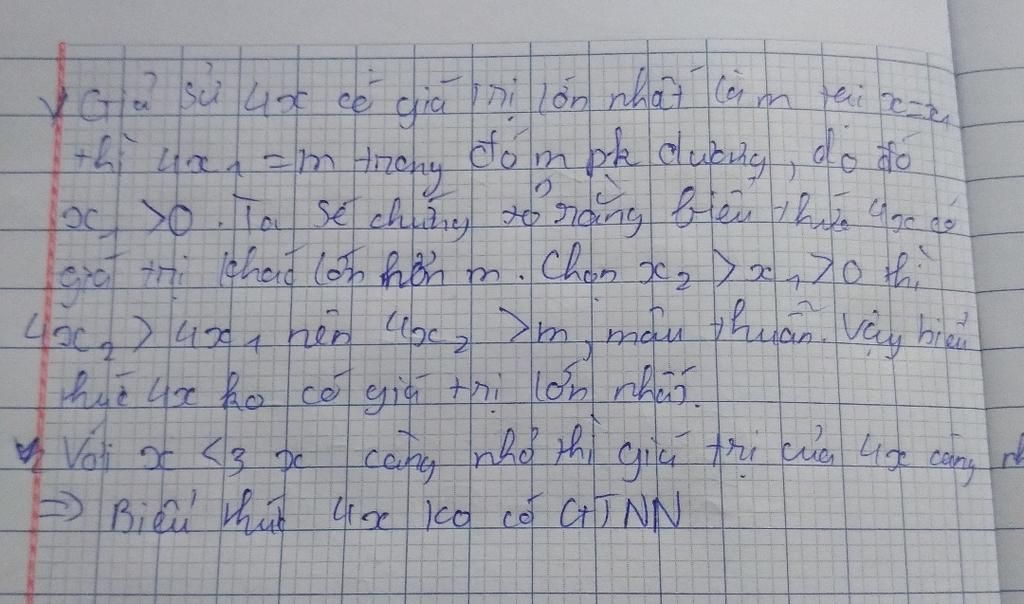 Giả sử 4x có giá trị lớn nhất là m tại x=x₁
thì 4x₁ = m trong đó m pk dương, do đó
x₁ >0. Ta sẽ chứng tỏ rằng biểu thức 4x có
giá trị khác lớn hơn m. Chọn x₂ > x₁ >0 thì
4x₂ > 4x₁ nên 4x₂ > m, mâu thuẫn. Vậy biểu
thức 4x ko có giá trị lớn nhất.
Với x <3 x càng nhỏ thì giá trị của 4x càng
=> Biểu thức 4x ko có GTNN